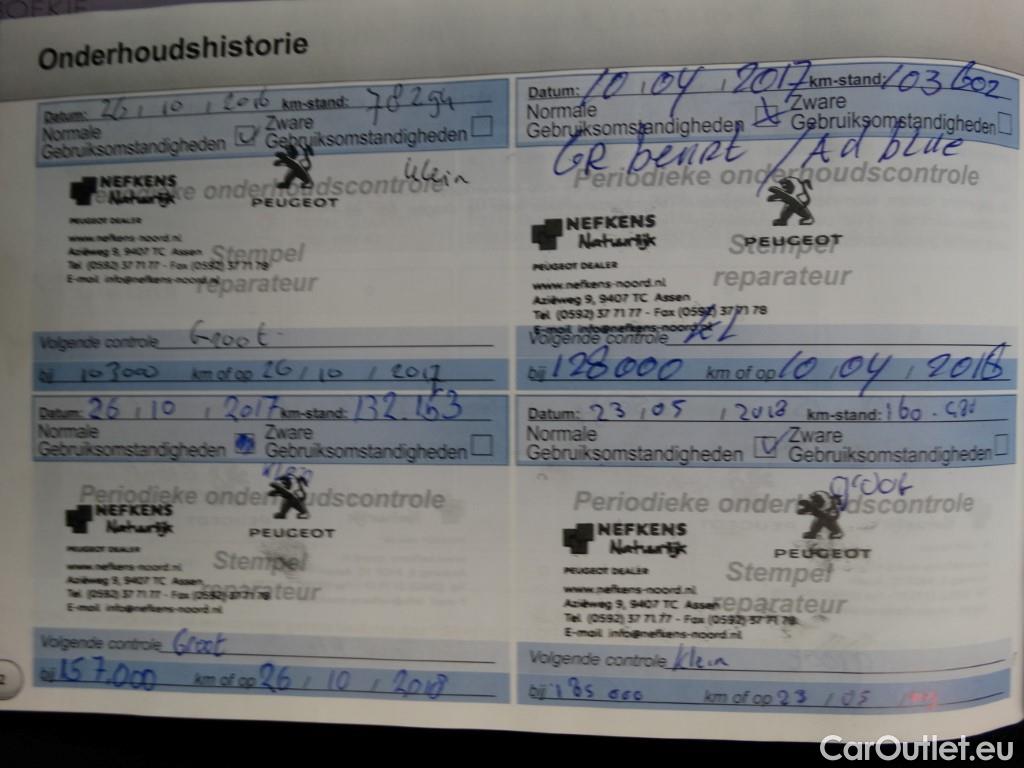 BOEKJE
Onderhoudshistorie
Datum: 26 / 10 / 2016 km-stand: 78294
Normale Gebruiksomstandigheden Zware Gebruiksomstandigheden
klein
Periodieke onderhoudscontrole
NEFKENS
Natuurlijk
PEUGEOT
PEUGEOT DEALER
www.nefkens-noord.nl
Aziëweg 9, 9407 TC Assen
Stempel
Tel. (0592) 37 71 77 - Fax (0592) 37 71 78
E-mail info@nefkens-noord.nl
reparateur
Volgende controle Groot
bij 103000 km of op 26 / 10 / 2017
Datum: 10 / 04 / 2017 km-stand: 103602
Normale Gebruiksomstandigheden Zware Gebruiksomstandigheden
GR beurt / Ad blue
Periodieke onderhoudscontrole
NEFKENS
Natuurlijk
PEUGEOT
Stempel
PEUGEOT DEALER
www.nefkens-noord.nl
reparateur
Aziëweg 9, 9407 TC Assen
Tel. (0592) 37 71 77 - Fax (0592) 37 71 78
E-mail info@nefkens-noord.nl
Volgende controle KL
bij 128000 km of op 10 / 04 / 2018
Datum: 26 / 10 / 2017 km-stand: 132.163
Normale Gebruiksomstandigheden Zware Gebruiksomstandigheden
klein
Periodieke onderhoudscontrole
NEFKENS
Natuurlijk
PEUGEOT
PEUGEOT DEALER
Stempel
www.nefkens-noord.nl
Aziëweg 9, 9407 TC Assen
Tel. (0592) 37 71 77 - Fax (0592) 37 71 78
reparateur
E-mail info@nefkens-noord.nl
Volgende controle Groot
bij 157.000 km of op 26 / 10 / 2018
Datum: 23 / 05 / 2018 km-stand: 160.
Normale Gebruiksomstandigheden Zware Gebruiksomstandigheden
groot
Periodieke onderhoudscontrole
NEFKENS
Natuurlijk
PEUGEOT
PEUGEOT DEALER
Stempel
www.nefkens-noord.nl
Aziëweg 9, 9407 TC Assen
reparateur
Tel. (0592) 37 71 77 - Fax (0592) 37 71 78
E-mail info@nefkens-noord.nl
Volgende controle klein
bij 185 000 km of op 23 / 05 /
2
CarOutlet.eu